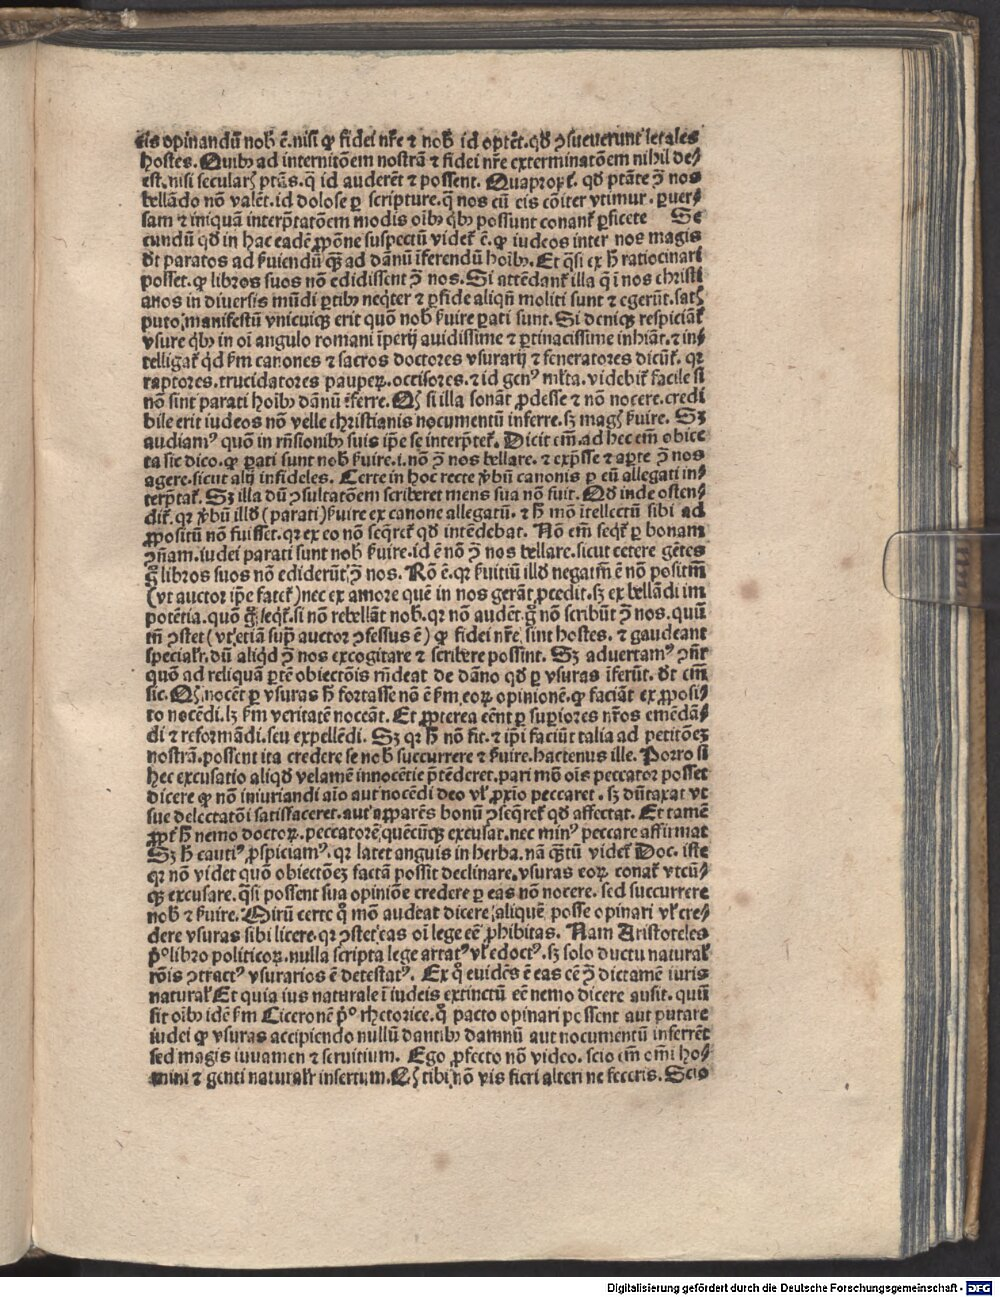 eis opinandū nob̄ ē. nisi ꝙ fidei nr̄e ⁊ nob̄ id optēt. qđ ꝯsueuerunt letales
hostes. Quibꝫ ad internitōem nostrā ⁊ fidei nr̄e exterminatōem nihil de⸗
est. nisi secularꝭ ptās. q̄ id auderēt ⁊ possent. Quapropt̄. qđ ptāte ꝯ̄ nos
bellādo nō valēt. id dolose ꝑ scripture. q̄ nos cū eis cōiter vtimur. ꝑuer⸗
sam ⁊ iniquā interp̄tatōem modis oībꝫ qͥbꝫ possunt conant̄ ꝑficere Se
cundū qđ in hac eadē ꝓpōne suspectū videt̄ ē. ꝙ iudeos inter nos magis
dt̄ paratos ad ẜuiendū qꝫ̄ ad dānū īferendū hoībꝫ. Et qͣsi ex h̄ ratiocinari
posset. ꝙ libros suos nō edidissent ꝯ̄ nos. Si attēdant̄ illa q̄ ī nos christi
anos in diuersis mūdi ꝑtibꝫ neqͥter ⁊ ꝑfide aliqn̄ moliti sunt ⁊ egerūt. satꝭ
puto, manifestū vnicuiqꝫ erit quō nob̄ ẜuire ꝑati sunt. Si deniqꝫ respiciāt̄
vsure qͥbꝫ in oī angulo romani īperij auidissime ⁊ ꝑtinacissime inhiāt. ⁊ in⸗
telligat̄ qͥd ẜm canones ⁊ sacros doctores vsurarij ⁊ feneratores dicūt̄. qꝛ
raptores. trucidatores pauperꝝ. occisores. ⁊ id genꝰ ml̄ta. videbit̄ facile si
nō sint parati hoībꝫ dānū īferre. Qꝭ si illa sonāt ꝓdesse ⁊ nō nocere. credi
bile erit iudeos nō velle christianis nocumentū inferre. sꝫ magꝭ ẜuire. Sꝫ
audiamꝰ quō in rn̄sionibꝫ suis ip̄e se interp̄tet̄. Dicit em̄. ad hec em̄ obiec
ta sic dico. ꝙ ꝑati sunt nob̄ ẜuire. i. nō ꝯ̄ nos bellare. ⁊ exp̄sse ⁊ aꝑte ꝯ̄ nos
agere. sicut alij infideles. Certe in hoc recte v̄bū canonis ꝑ eū allegati in⸗
terp̄tat̄. Sꝫ illa dū ꝯsultatōem scriberet mens sua nō fuit. Qđ inde osten⸗
dit̄. qꝛ v̄bū illđ (parati) ẜuire ex canone allegatū. ⁊ h̄ mō ītellectū sibi ad
ꝓpositū nō fuisset. qꝛ ex eo nō seqͥret̄ qđ intēdebat. Nō em̄ seqͥt̄ ꝑ bonam
ꝯn̄am. iudei parati sunt nob̄ ẜuire. id ē nō ꝯ̄ nos bellare. sicut cetere gētes
gͦ libros suos nō ediderūt ꝯ̄ nos. Rō ē. qꝛ ẜuitiū illđ negatiꝰ ē nō positiuū
(vt auctor ip̄e fatet̄) nec ex amore quē in nos gerāt ꝓcedit. sꝫ ex bellādi im
potētia. quō gͦ seqͥt̄. si nō rebellāt nob̄. qꝛ nō audēt. gͦ nō scribūt ꝯ̄ nos. quū
tn̄ ꝯstet (vt etiā supͣ auctor ꝯfessus ē) ꝙ fidei nr̄e, sint hostes. ⁊ gaudeant
specialr̄. dū aliqͥd ꝯ̄ nos excogitare ⁊ scribere possint. Sꝫ aduertamꝰ ꝯn̄r
quō ad reliquā ꝑtē obiectōis rn̄deat de dāno qđ ꝑ vsuras īferūt. dt̄ em̄
sic. Qꝭ nocēt ꝑ vsuras h̄ fortasse nō ē ẜm eoꝝ opinionē. ꝙ faciāt ex ꝓposi⸗
to nocēdi. lꝫ ẜm veritatē noceāt. Et ꝓpterea eēnt ꝑ suꝑiores nr̄os emēdā⸗
di ⁊ reformādi. seu expellēdi. Sꝫ qꝛ h̄ nō fit. ⁊ ip̄i faciūt talia ad petitōeꝫ
nostrā. possent ita credere se nob̄ succurrere ⁊ ẜuire. hactenus ille. Porro si
hec excusatio aliqđ velamē innocētie p̄tēderet. pari mō oīs peccator posset
dicere ꝙ nō iniuriandi aīo aut nocēdi deo vl̄ ꝓxīo peccaret. sꝫ dūtaxat vt
sue delectatōi satisfaceret. aut apparēs bonū ꝯseqͥret̄ qđ affectat. Et tamē
ꝓpt̄ h̄ nemo doctoꝝ. peccatorē quēcūqꝫ excusat. nec minꝰ peccare affirmat
Sꝫ h̄ cautiꝰ ꝓspiciamꝰ. qꝛ latet anguis in herba. nā qͣtū videt̄ Doc. iste
qꝛ nō videt quō obiectōeꝫ factā possit declinare. vsuras eoꝝ conat̄ vtcū⸗
qꝫ excusare. qͣsi possent sua opiniōe credere ꝑ eas nō nocere. sed succurrere
nob̄ ⁊ ẜuire. Mirū certe qͦ mō audeat dicere, aliquē posse opinari vl̄ cre⸗
dere vsuras sibi licere. qꝛ ꝯstet eas oī lege eē ꝓhibitas. Nam Aristoteles
pͦ libro politicoꝝ. nulla scripta lege artatꝰ vl̄ edoctꝰ. sꝫ solo ductu natural̄
rōis ꝯtractꝰ vsurarios ē detestatꝰ. Ex qͦ euidēs ē eas eē ꝯ̄ dictamē iuris
natural̄ Et quia ius naturale ī iudeis extinctū eē nemo dicere ausit. quū
sit oībꝫ idē ẜm Ciceronē pͦ rhetorice. qͦ pacto opinari possent aut putare
iudei ꝙ vsuras accipiendo nullū dantibꝫ damnū aut nocumentū inferrēt
sed magis iuuamen ⁊ seruitium. Ego ꝓfecto nō video. scio em̄ om̄i ho⸗
mini ⁊ genti naturalr̄ insertum. Qꝭ tibi nō vis fieri alteri ne feceris. Scio
Digitalisierung gefördert durch die Deutsche Forschungsgemeinschaft - DFG